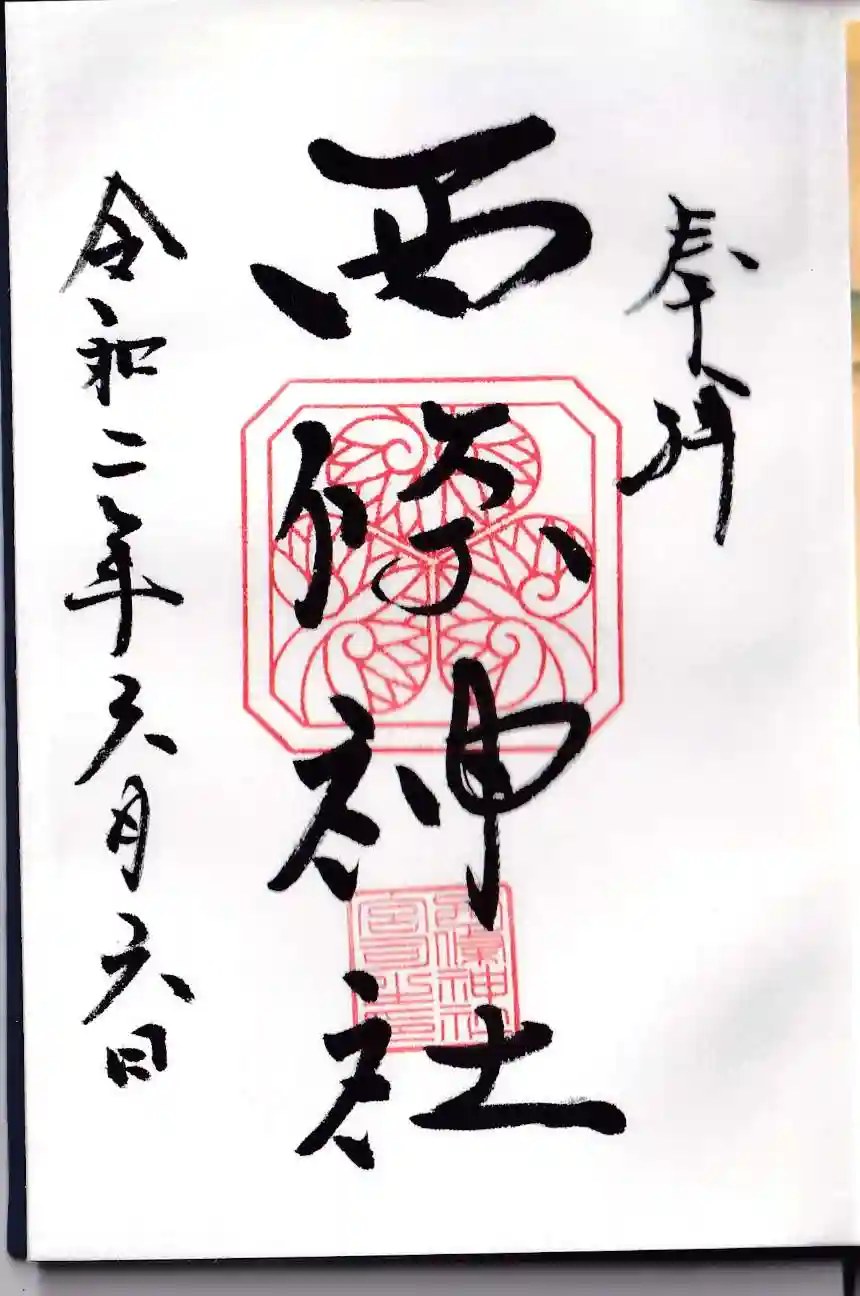 奉拝
西條神社
西條神社
宮司之印
令和二年六月六日